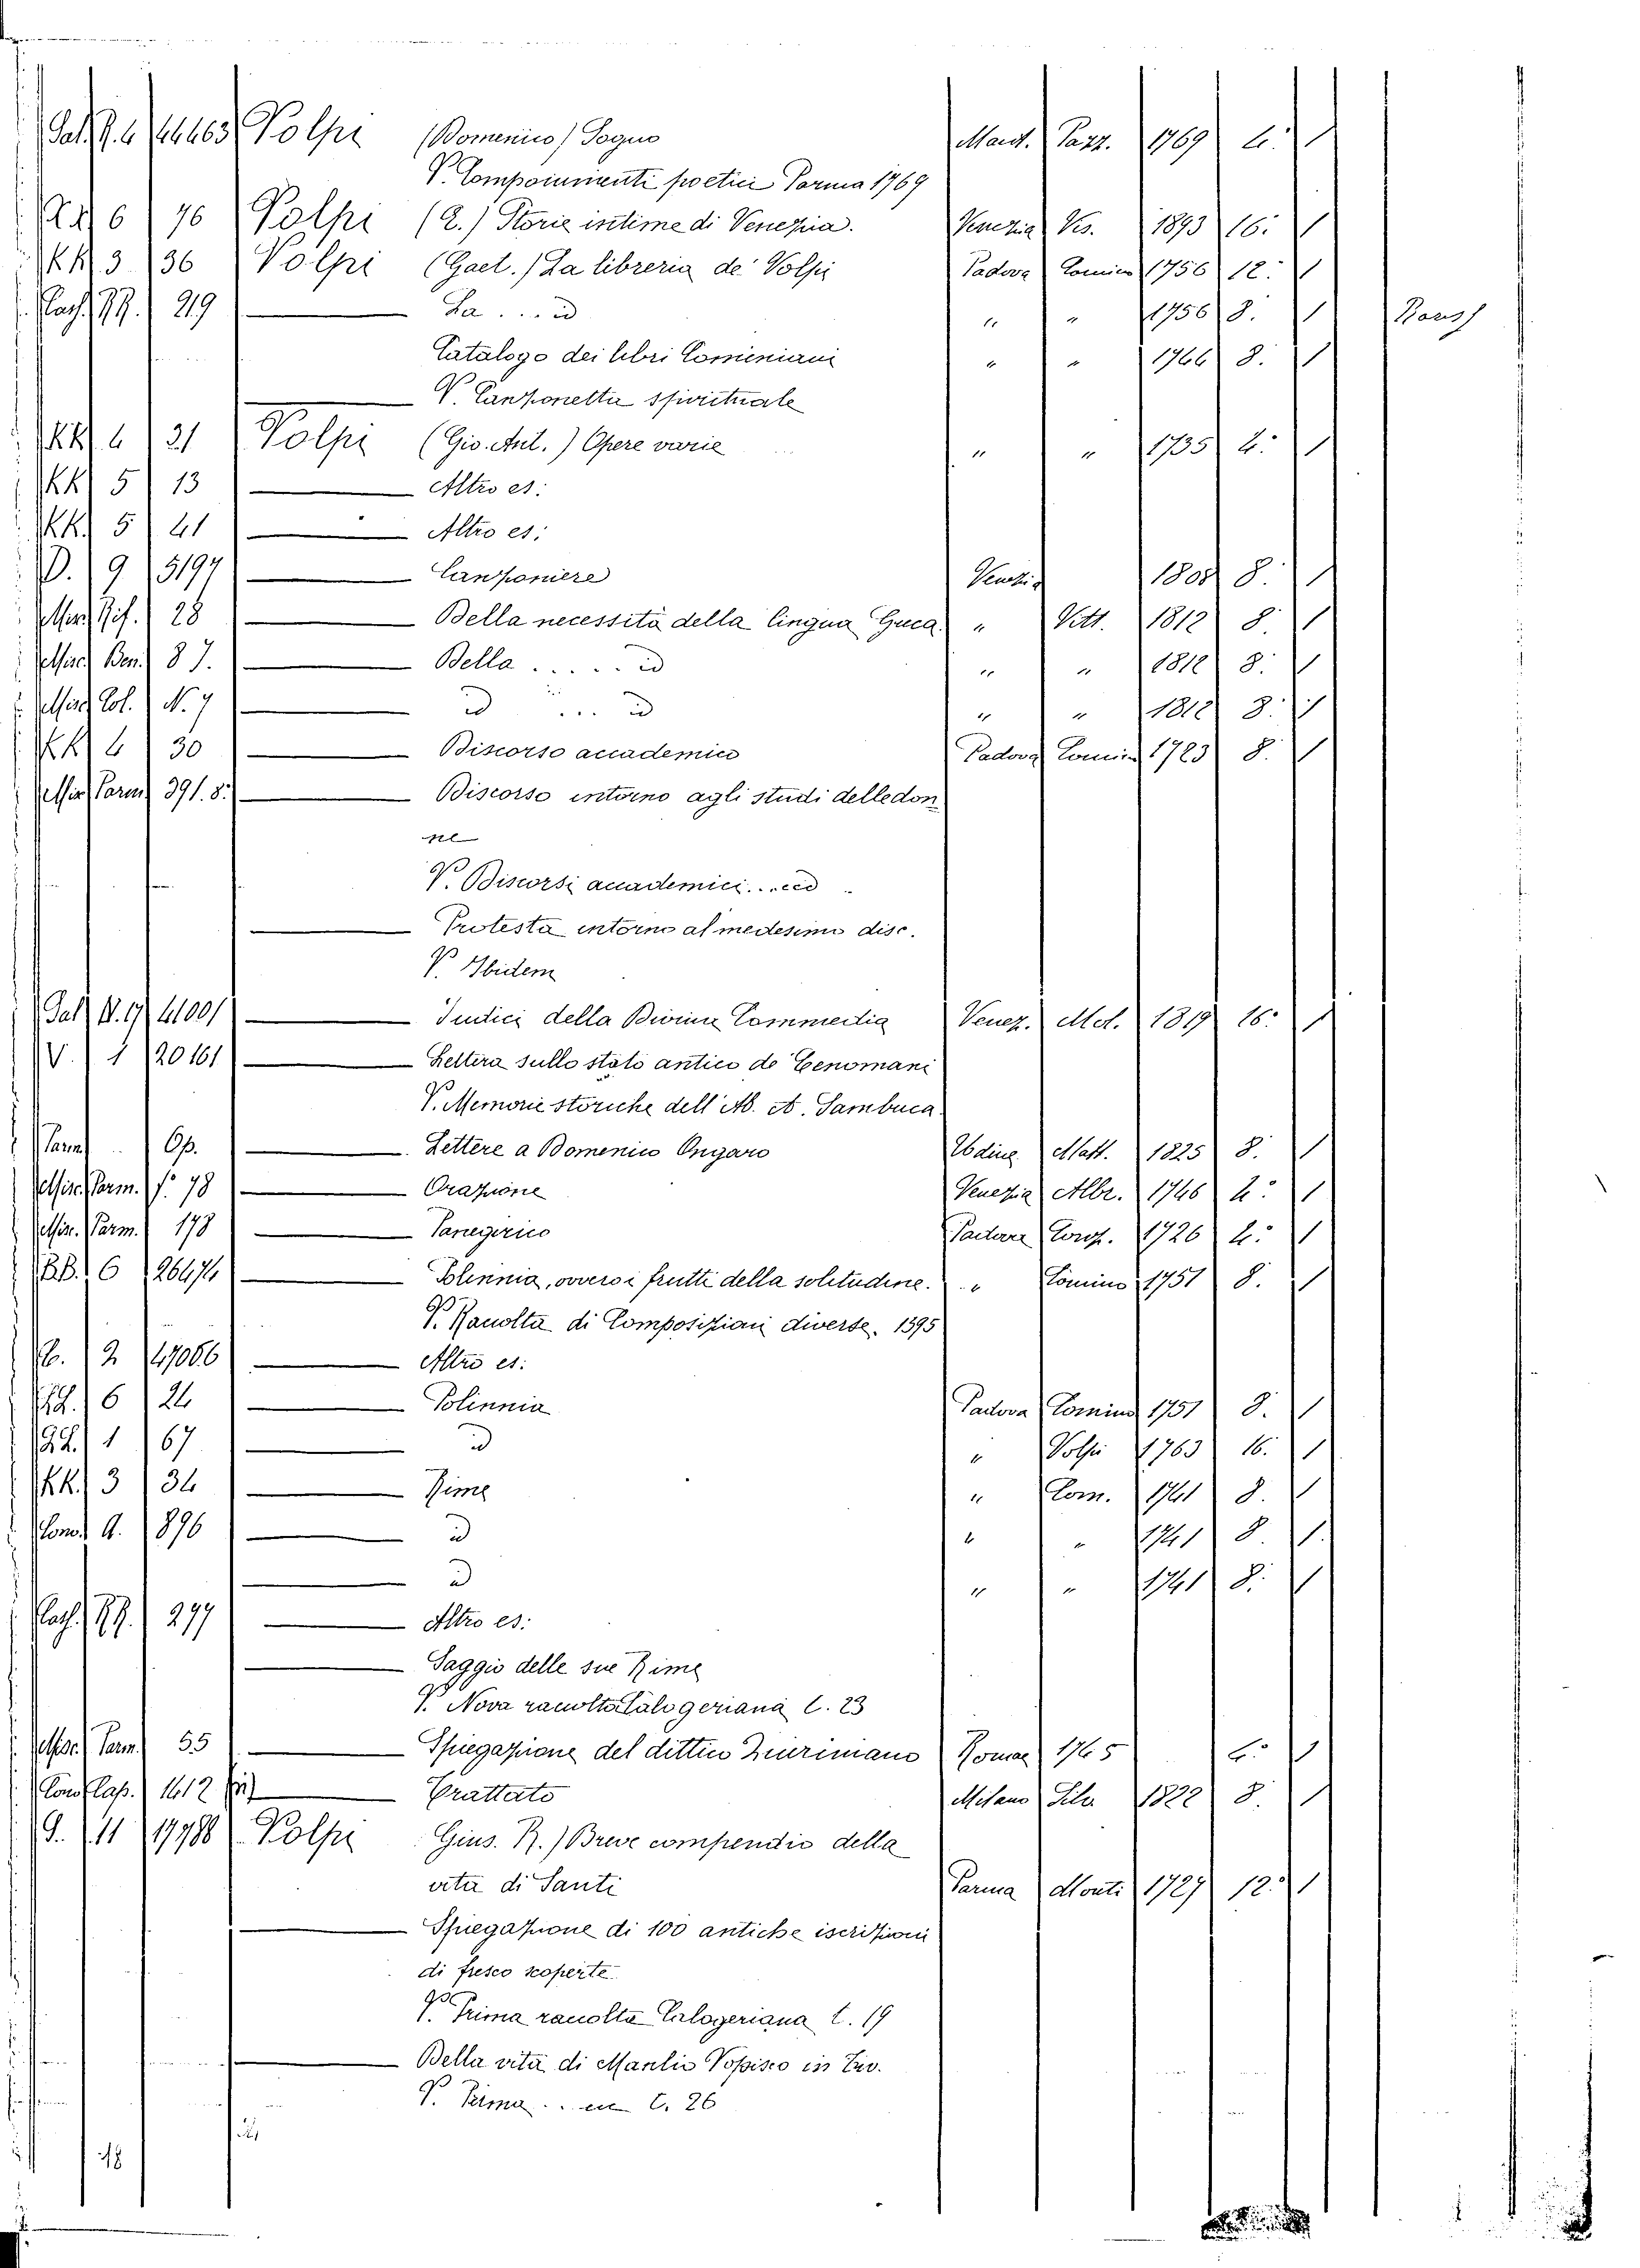 Sal. P. 4 44463 Volpi (Domenico) Sogno Mant. Pazz. 1769 4. 1
V. Componimenti poetici Parma 1769
6 76 Volpi (E.) Storie intime di Venezia. Venezia Vis. 1893 16. 1
KK 3 36 Volpi (Gaet.) La libreria de' Volpi Padova Comino 1756 12. 1
219 — La . . . . id " " 1756 8. 1
Catalogo dei libri Cominiani " " 1766 8. 1
— V. Canzonetta spirituale
KK 4 21 Volpi (Gio. Ant.) Opere varie " " 1735 4. 1
KK 5 13 — Altro es:
KK 5 41 — Altro es:
D. 9 5197 — Canzoniere Venezia 8. 1
28 — Della necessità della lingua Greca " Vitt. 1812 8. 1
Misc. Ben. 87. — Della . . . . . id " " 1812 8. 1
Misc. Col. N. 7 — id . . . id " " 1812 8. 1
KK 4 30 — Discorso accademico Padova Comin 1723 8. 1
Misc. Parm. 391. 8. — Discorso intorno agli studi delle don
ne
V. Discorsi accademici . . . . id
— Protesta intorno al medesimo disc.
V. Ibidem
Sal. N. 17 41001 — Indici della Divina Commedia Venez. Mol. 1819 16. 1
V. 1 20161 — Lettera sullo stato antico de' Cenomani
V. Memorie storiche dell'Ab. A. Sambuca
Parm. Op. — Lettere a Domenico Ongaro Udine Matt. 1825 8. 1
Misc. Parm. f.º 78 — Orazione Venezia Albr. 1746 4. 1
Misc. Parm. 178 — Panegirico Padova 1726 4. 1
BB. 6 26474 — Polinnia, ovvero i frutti della solitudine. " Comino 1751 8. 1
V. Raccolta di Composizioni diverse. 1395
2 47086 — Altro es:
6 24 — Polinnia Padova Comino 1751 8. 1
1 67 — id " Volpi 1763 16. 1
KK. 3 34 — Rime " Com. 1741 8. 1
896 — id " " 1741 8. 1
— id " " 1741 8. 1
277 — Altro es:
— Saggio delle sue Rime
V. Nova raccolta Calogeriana t. 23
Misc. Parm. 55 — Spiegazione del dittico Quirimano Roma 1765 4. 1
1612 — Trattato Milano Silv. 1822 8. 1
11 17788 Volpi Gius. R.) Breve compendio della
vita di Santi Parma Monti 1727 12. 1
— Spiegazione di 100 antiche iscrizioni
di fresco scoperte
V. Prima raccolta Calogeriana t. 19
— Della vita di Manlio Vopisco in Tiv.
V. Prima . . t. 26
18